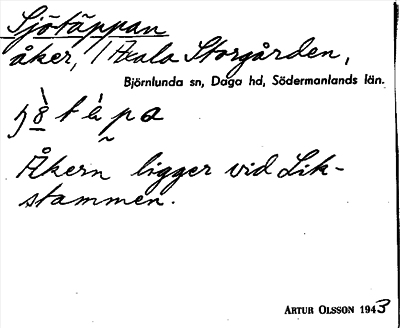 Sjötäppan
åker, 1 Axala Storgården,
Björnlunda sn, Daga hd, Södermanlands län.
Åkern ligger vid Lik-
stammen.
ARTUR OLSSON 1943